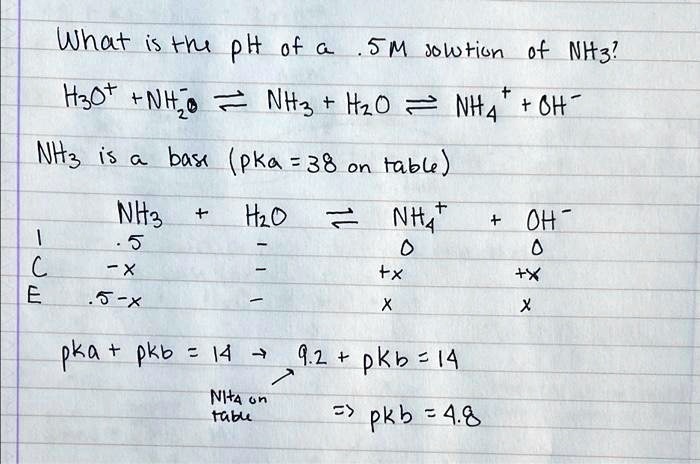 What is the pH of a .5M solution of NH3?
H3O+ + NH2- ⇌ NH3 + H2O ⇌ NH4+ + OH-
NH3 is a base (pka = 38 on table)
NH3 + H2O ⇌ NH4+ + OH-
I .5 - 0 0
C -x - +x +x
E .5-x - x x
pka + pkb = 14 → 9.2 + pkb = 14
NH4 on
table
=> pkb = 4.8